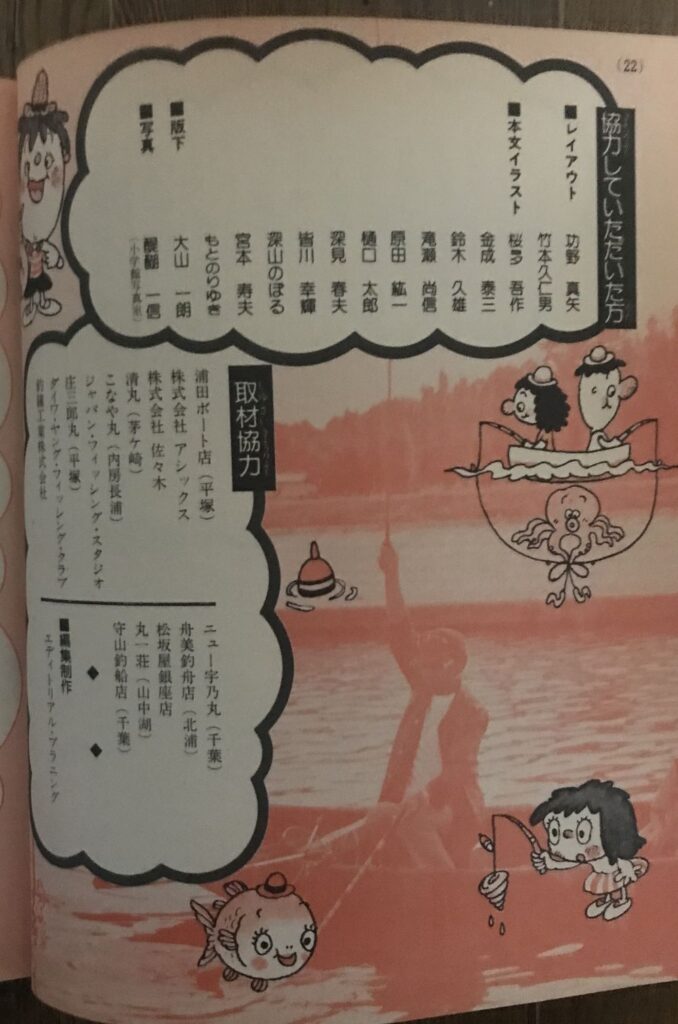 (22)
協力していただいた方
■レイアウト 功野 真矢
竹本久仁男
■本文イラスト 桜多 吾作
金成 泰三
鈴木 久雄
滝瀬 尚信
原田 紘一
樋口 太郎
深見 春夫
皆川 幸輝
深山のぼる
宮本 寿夫
もとのりゆき
■版下 大山 一朗
■写真 醍醐 一信
(小学館写真室)
取材協力
浦田ボート店(平塚)
株式会社 アシックス
株式会社 佐々木
清丸(茅ケ崎)
こなや丸(内房長浦)
ジャパン・フィッシング・スタジオ
庄三郎丸(平塚)
ダイワ・ヤング・フィッシング・クラブ
釣鐘工業株式会社
ニュー宇乃丸(千葉)
舟美釣舟店(北浦)
松坂屋銀座店
丸一荘(山中湖)
守山釣船店(千葉)
◆ ◆
■編集制作
エディトリアル・プラニング